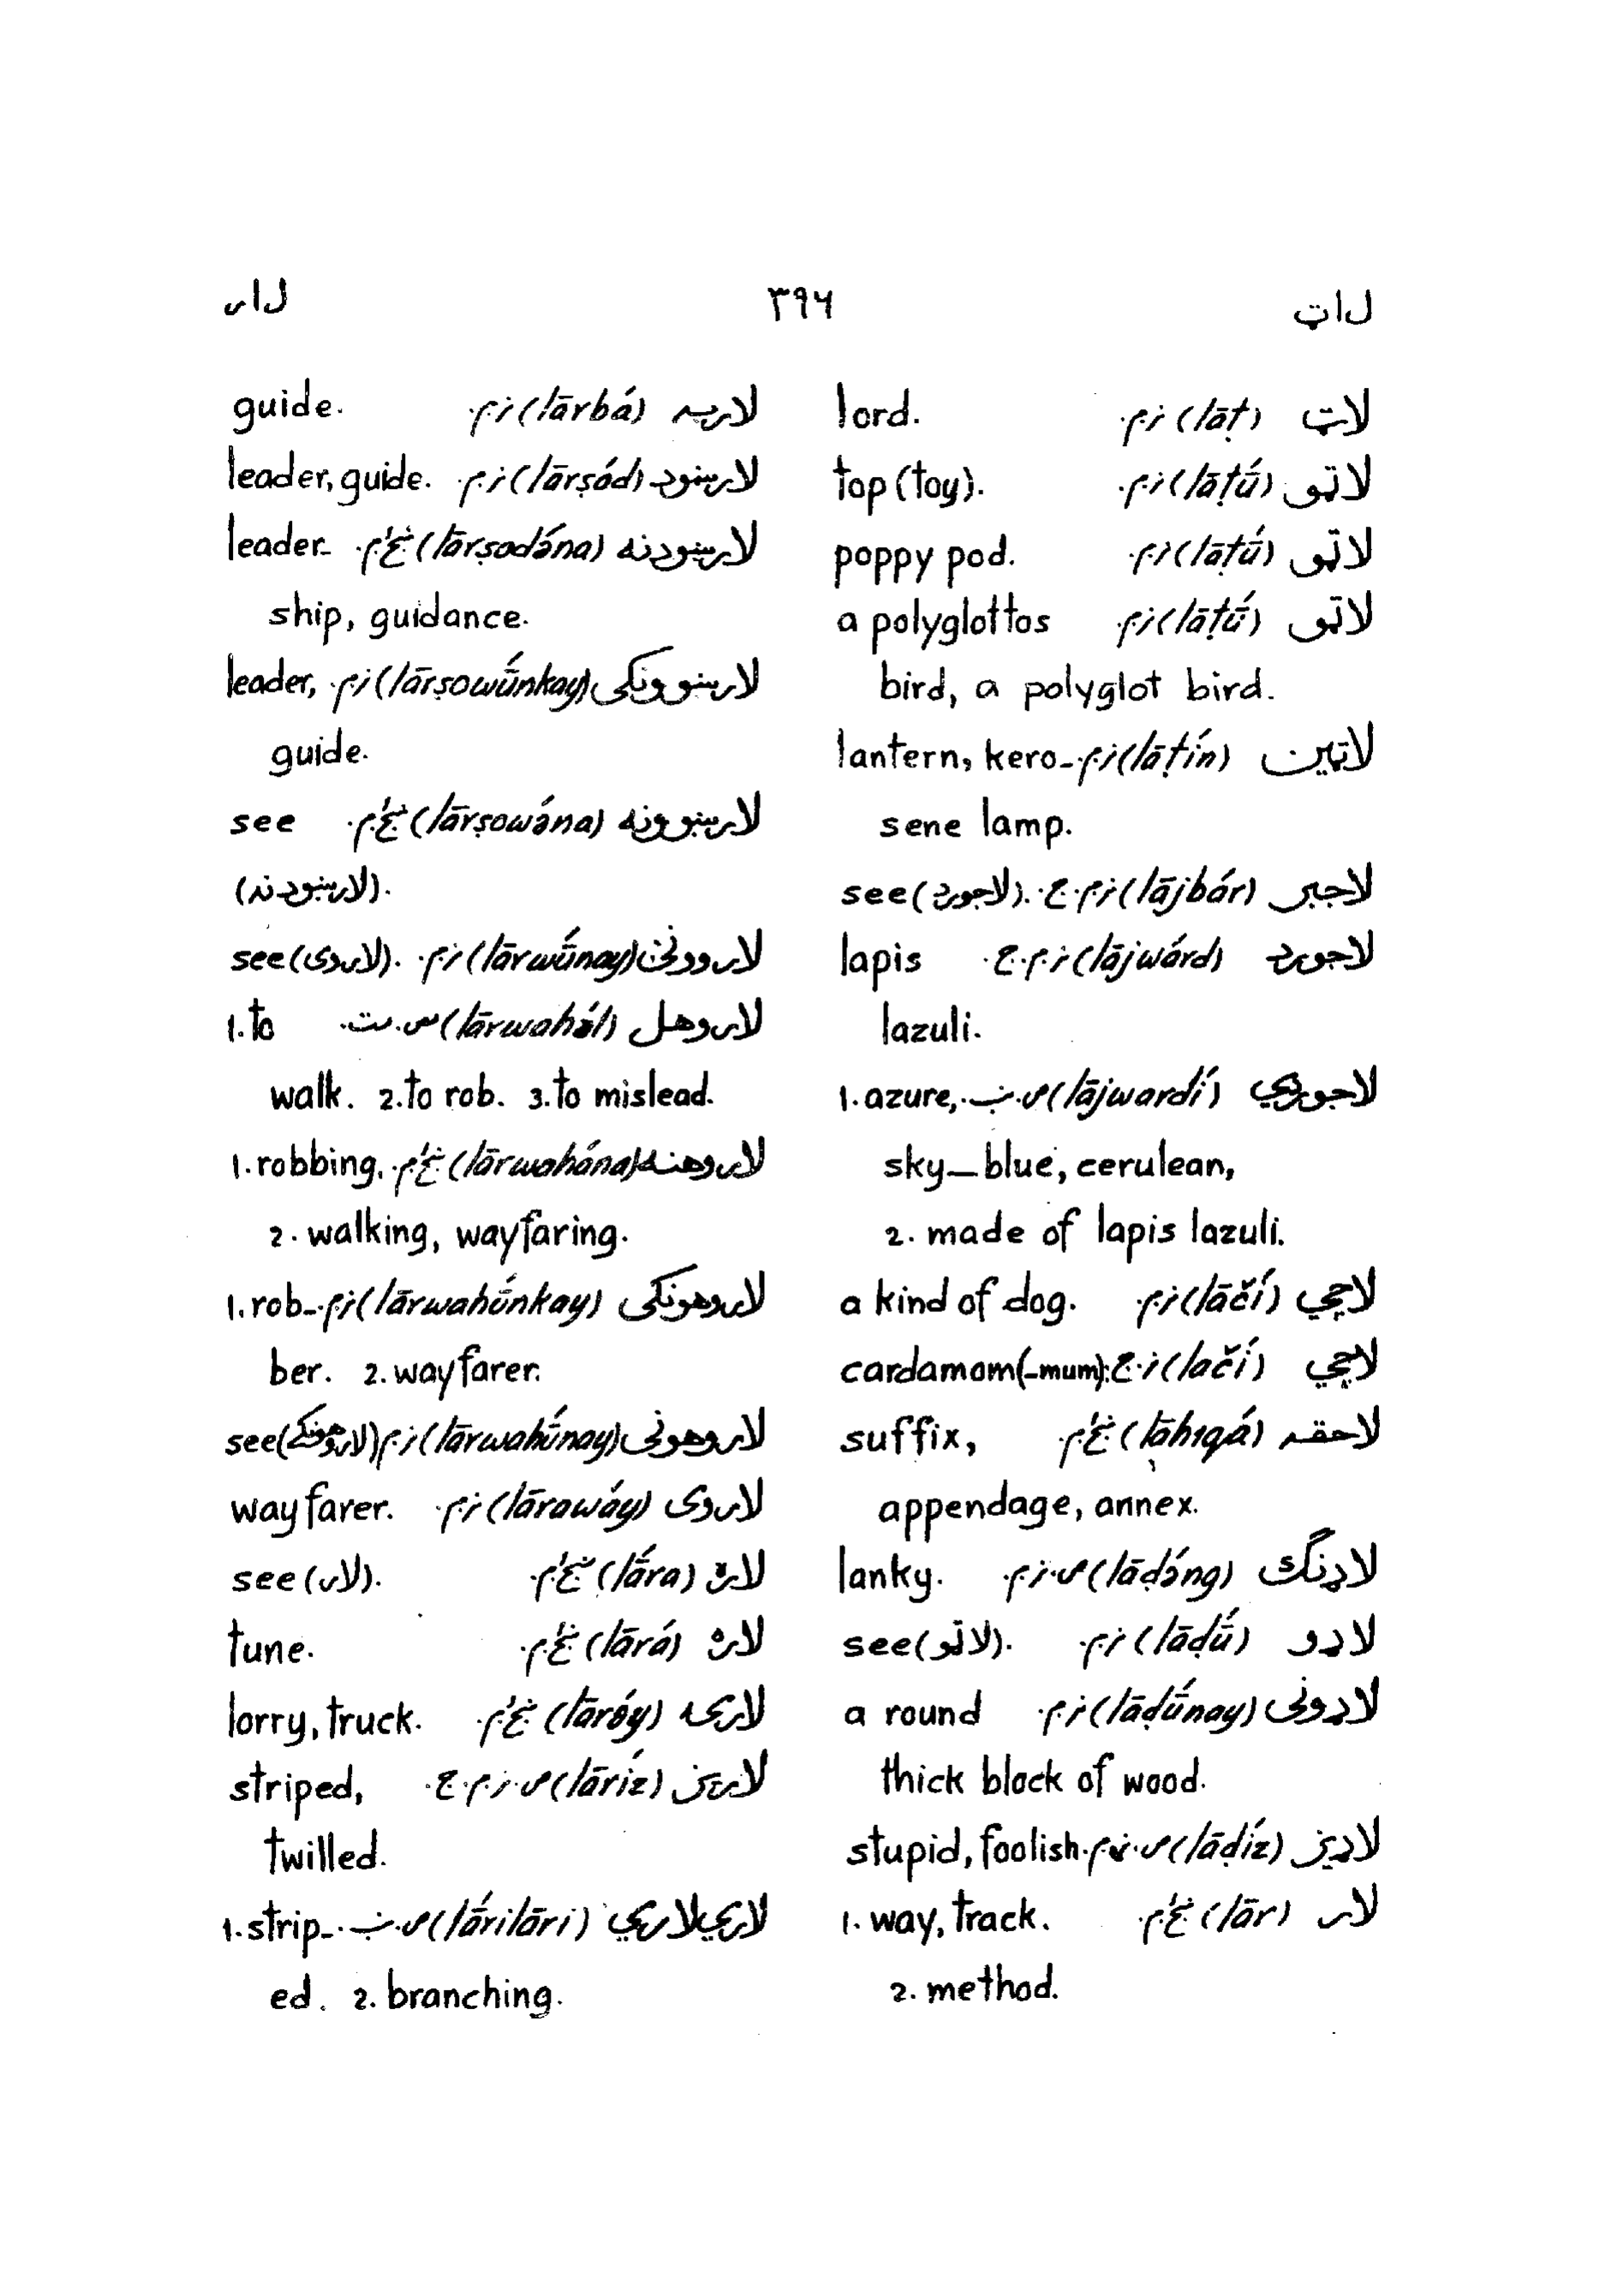 لاټ
۳۹۶
لار
لاټ (lāṭ) ن.م. lord.
لاټو (lāṭū́) ن.م. top (toy).
لاټو (lāṭū́) ن.م. poppy pod.
لاټو (lāṭū́) ن.م. a polyglottos
bird, a polyglot bird.
لاټين (lāṭín) ن.م. lantern, kero-
sene lamp.
لاجبر (lājbár) ن.م.ج. see (لاجورد).
لاجورد (lājwárd) ن.م.ج. lapis
lazuli.
لاجوردي (lājwardí) ص.ب. 1. azure,
sky-blue, cerulean,
2. made of lapis lazuli.
لاچي (lāčí) ن.م. a kind of dog.
لاچي (lačí) ن.ج. cardamom (-mum).
لاحقه (lāhiqá) ښځ.م. suffix,
appendage, annex.
لاډنګ (lāḍə́ng) ص.ن.م. lanky.
لاډو (lāḍū́) ن.م. see (لاټو).
لاډونی (lāḍū́nay) ن.م. a round
thick block of wood.
لاډيز (lāḍíz) ص.ن.م. stupid, foolish.
لار (lār) ښځ.م. 1. way, track.
2. method.
لاربه (lārbá) ن.م. guide.
لارښود (lārṣód) ن.م. leader, guide.
لارښودنه (lārṣodə́na) ښځ.م. leader-
ship, guidance.
لارښوونکی (lārṣowū́nkay) ن.م. leader,
guide.
لارښوونه (lārṣowə́na) ښځ.م. see
(لارښودنه).
لاروونی (lārwū́nay) ن.م. see (لاروی).
لاروهل (lārwahə́l) س.ت. 1. to
walk. 2. to rob. 3. to mislead.
لاروهنه (lārwahə́na) ښځ.م. 1. robbing,
2. walking, wayfaring.
لاروهونکی (lārwahū́nkay) ن.م. 1. rob-
ber. 2. wayfarer.
لاروهونی (lārwahū́nay) ن.م. see (لاروهونکی)
لاروی (lārawáy) ن.م. wayfarer.
لارﮤ (lā́ra) ښځ.م. see (لار).
لاره (lārá) ښځ.م. tune.
لارۍ (lārə́y) ښځ.م. lorry, truck.
لاريز (lāríz) ص.ن.م.ج. striped,
twilled.
لاري لاري (lā́rilāri) ص.ب. 1. strip-
ed. 2. branching.